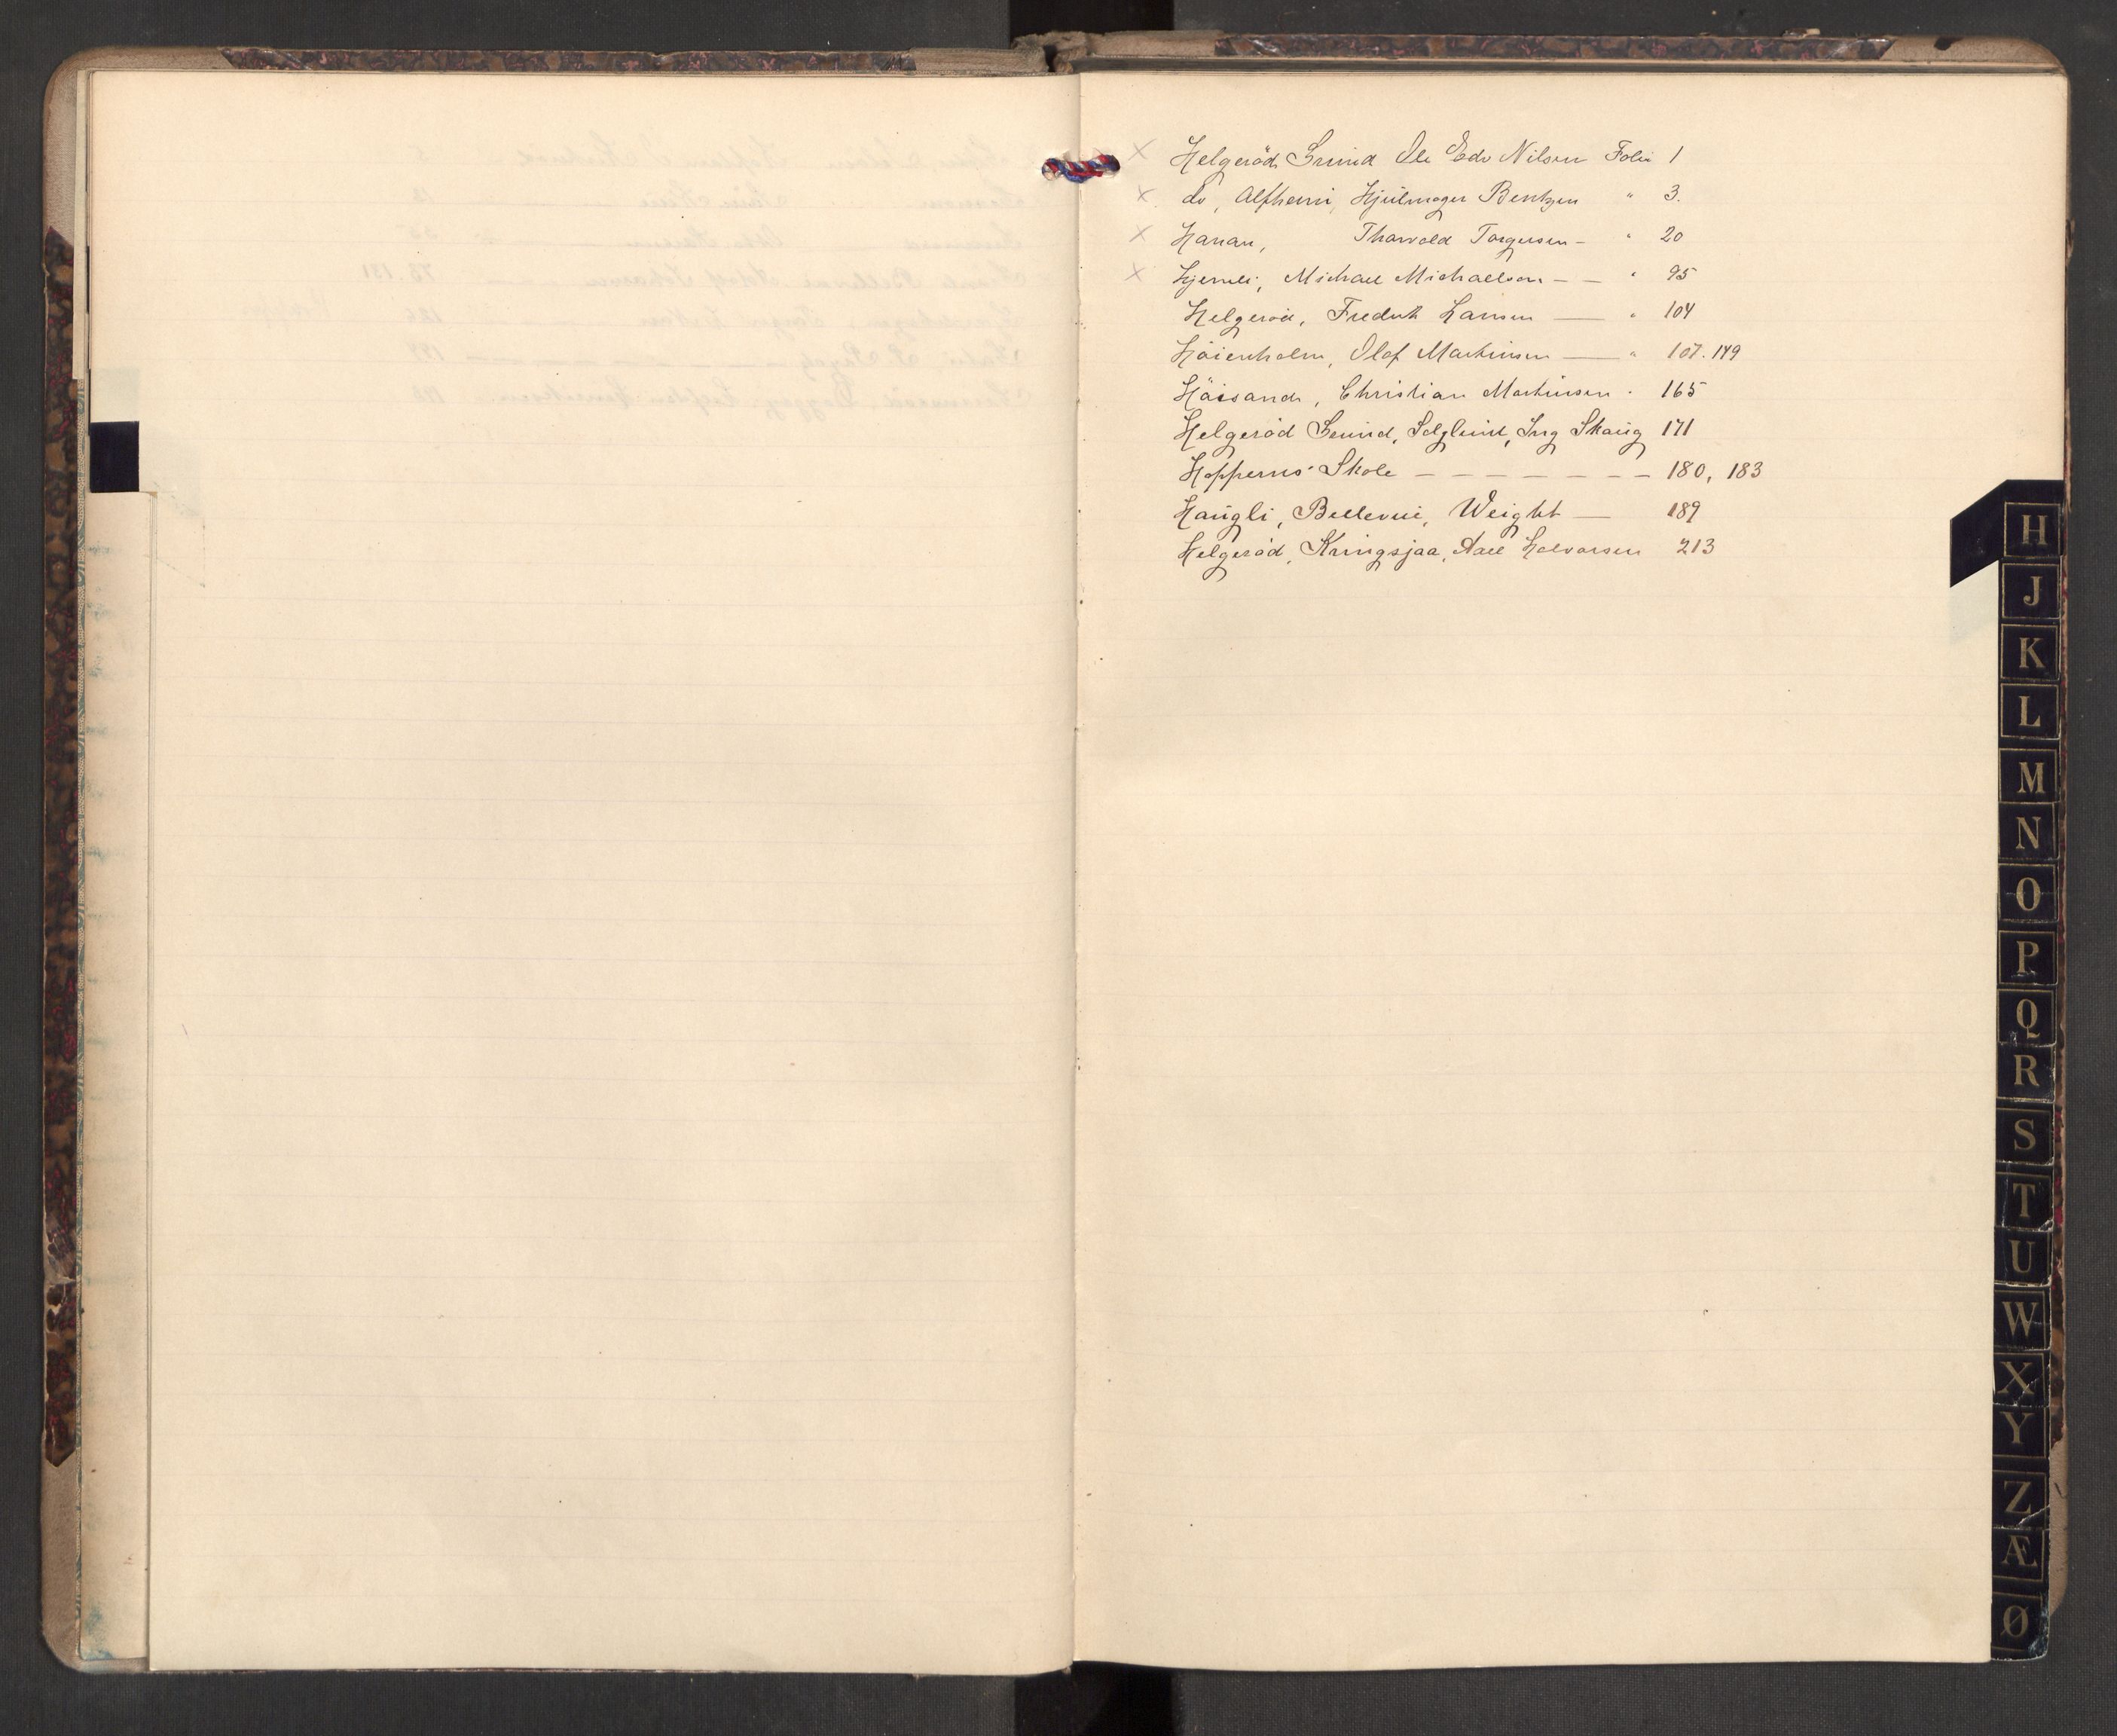 × Helgeröd Grund Ole Edv Nilsen Folio 1
× do, Alfheim, Hjulmager Bentzen " 3.
× Hanan, Thorvald Torgersen – " 20
× Hjemli, Michael Michaelsen – – " 95
Helgeröd, Fredrik Larsen — " 104
Höienholm, Olaf Martinsen — " 107. 149
Höisand, Christian Martinsen . 165
Helgeröd Grund, Solglimt, Ing Skaug 171
Hoppern's Skole – – – – – – – 180, 183
Haugli, Bellevue, Weight — 189
Helgeröd, Kringsjaa, Halvorsen 213
H
J
K
L
M
N
O
P
Q
R
S
T
U
W
X
Y
Z
Æ
Ø